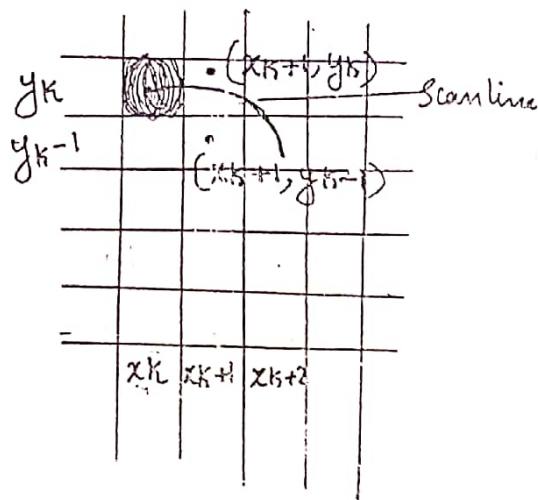 (xk+1, yk)
yk
Scanline
yk-1
(xk+1, yk-1)
xk xk+1 xk+2